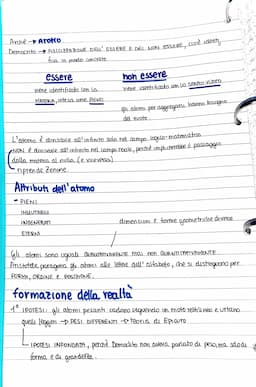 Democrito → ASSOCIAZIONE DELL'ESSERE E DEL NON ESSERE, cioè
essere
non essere
viene identificato con la
MATERIA, intesa come PIENO
gli atomi per aggregarsi hanno bisogno
del vuoto
L'atomo è divisibile all'infinito solo nel campo logico-matematico
NON è divisibile all'infinito nel campo reale, perché implicherebbe il passaggio
dalla materia al nulla (e viceversa)
riprende Zenone.
Attributi dell'atomo
PIENI
IMMUTABILI
INGENERATI
ETERNI
dimensioni e forme geometriche diverse
Gli atomi sono uguali QUALITATIVAMENTE ma non QUANTITATIVAMENTE.
Aristotele paragona gli atomi alle lettere dell'alfabeto, che si distinguono per
FORMA, ORDINE e POSIZIONE.
formazione della realtà
1° IPOTESI: gli atomi pesanti cadono seguendo un moto rettilineo e urtano
quelli leggeri → PESI DIFFERENTI → TEORIA di Epicuro
IPOTESI INFONDATA, perché Democrito non aveva parlato di peso, ma solo di
forma e di grandezza.